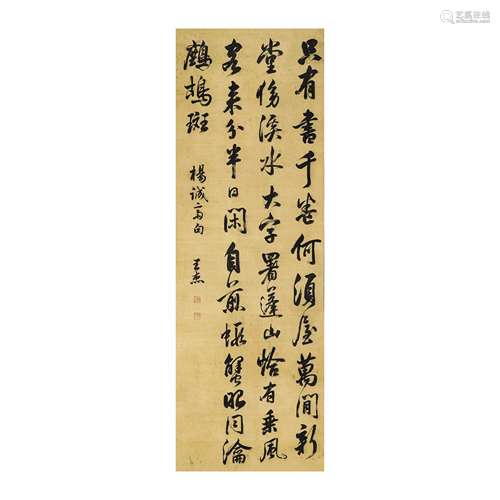 只有書千卷何須屋萬間新
堂傍溪水大字署蓬山恰有乘風
客来分半日閑自煎蝦蟹眼同瀹
鷓鴣斑
楊誠斋句
王杰
艺赢在线
yiyingonline.com